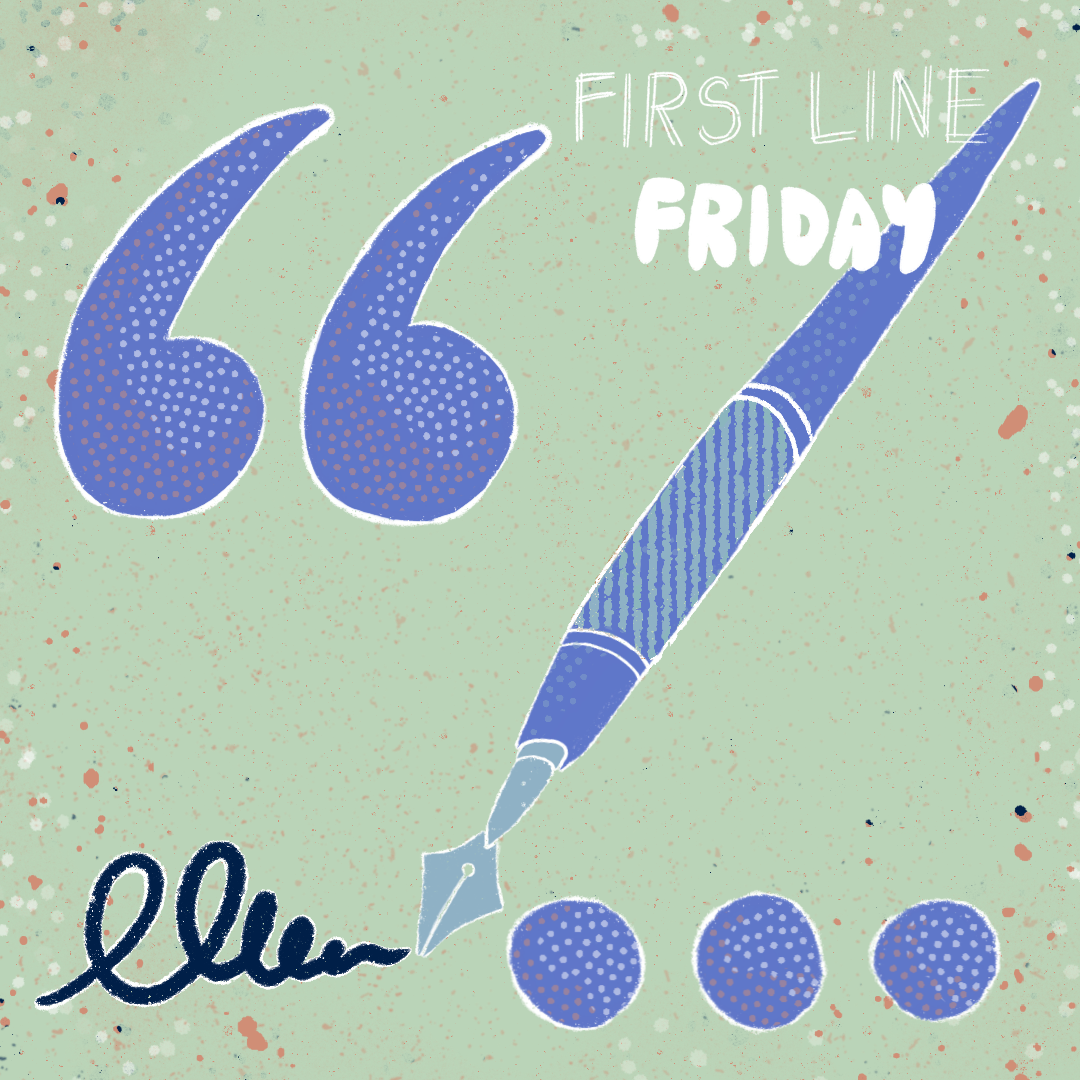 FIRST LINE
FRIDAY